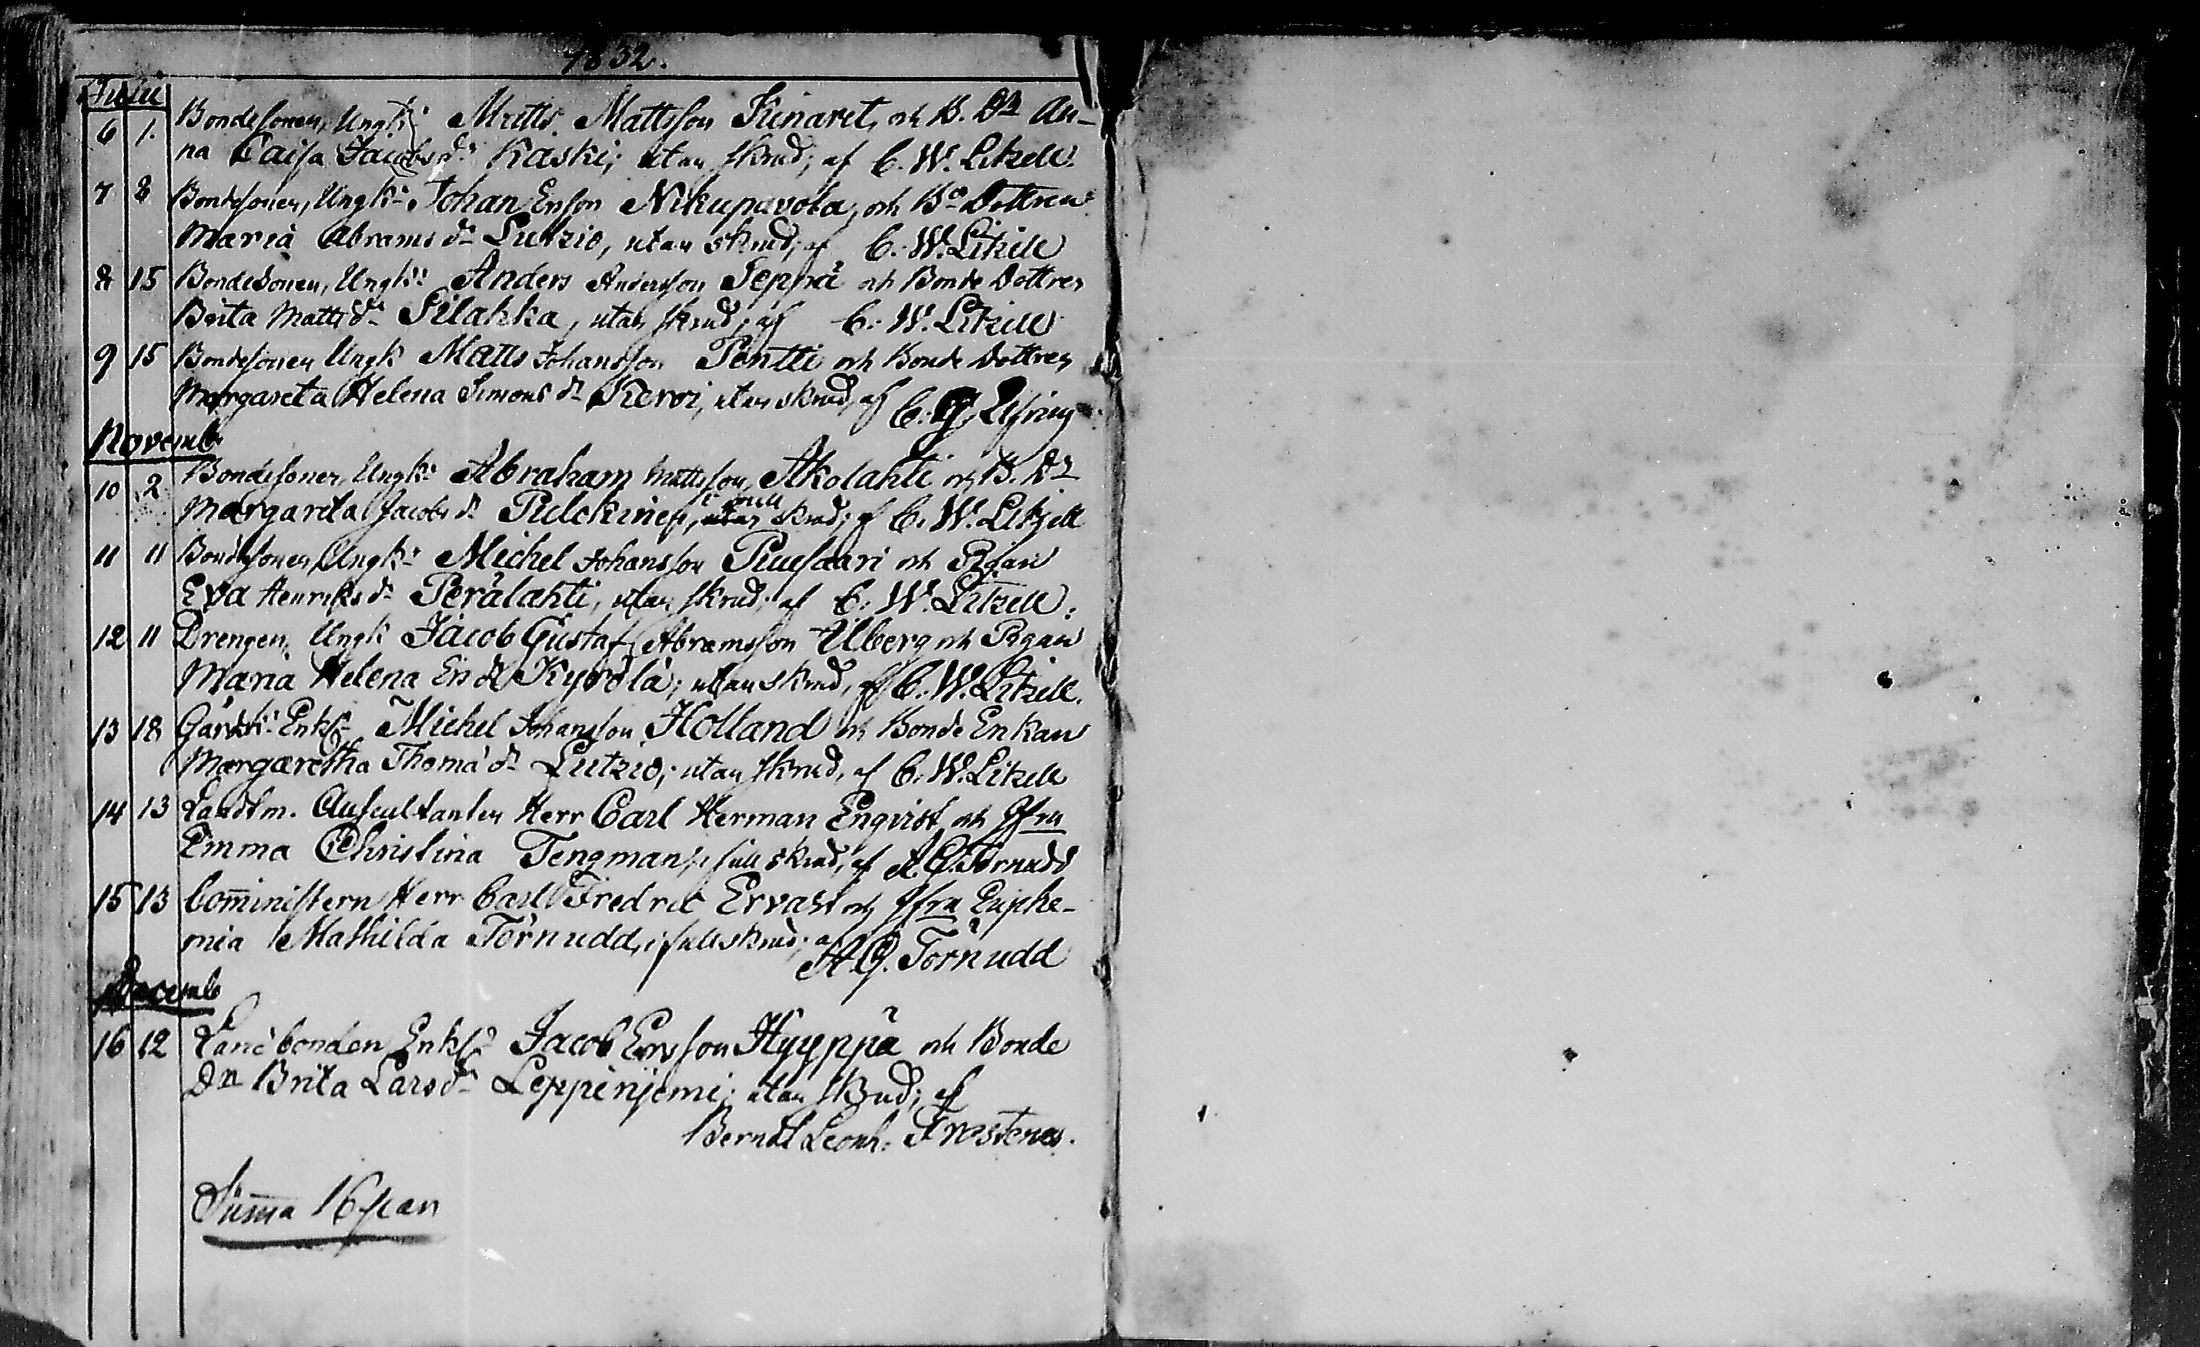 1832.
Julii
6 1. Bondesonen, Ungk: Matts Mattsson Kinaret, och B. Dr An-
na Caisa Jacobs dr Kaski; utan skrud; af C. W. Litzell.
7 8 Bondesonen, Ungk: Johan Ersson Nikupavola, och Bde Dottren
Maria Abrams dr Lutzio, utan skrud; af C. W. Litzell
8 15 Bondesonen, Ungk: Anders Andersson Seppä och Bonde Dottren
Brita Matts dr Pilahka, utan skrud; af C. W. Litzell
9 15 Bondesonen Ungk Matts Johansson Pentti och Bonde Dottren
Margareta Helena Simons dr Keroi, utan skrud, af C. G.
Novemb
10 2 Bondesonen, Ungk: Abraham Mattsson Akolahti och B. Dr
Margareta Jacobs dr Pulckinen, i full skrud; af C. W. Litzell
11 11 Bondesonen, Ungk: Michel Johansson Puusaari och Pigan
Eva Henriks dr Perälahti, utan skrud; af C. W. Litzell.
12 11 Drengen, Ungk: Jacob Gustaf Abramsson Uberg och Pigan
Maria Helena Ers dr Kyrölä; utan skrud, af C. W. Litzell.
13 18 Enkl: Michel Johansson Holland och Bonde Enkan
Margaretha Thoma dr Lutzio; utan skrud, af C. W. Litzell
14 13 Landtm. Auscultanten Herr Carl Herman Enqvist och Jfru
Emma Christina Tengman, i full skrud, af A. G. Törnudd
15 13 Com̅inistern Herr Carl Fredric Ervast och Jfru Euphe-
mia Mathilda Törnudd, i full skrud; af
A. G. Törnudd
Decemb
16 12 Landbonden Enkl: Jacob Ersson Hyyppä och Bonde
Dn Brita Lars dr Leppinjemi; utan skrud; af
Berndt Leonh: Frosterus.
Sum̅a 16 par